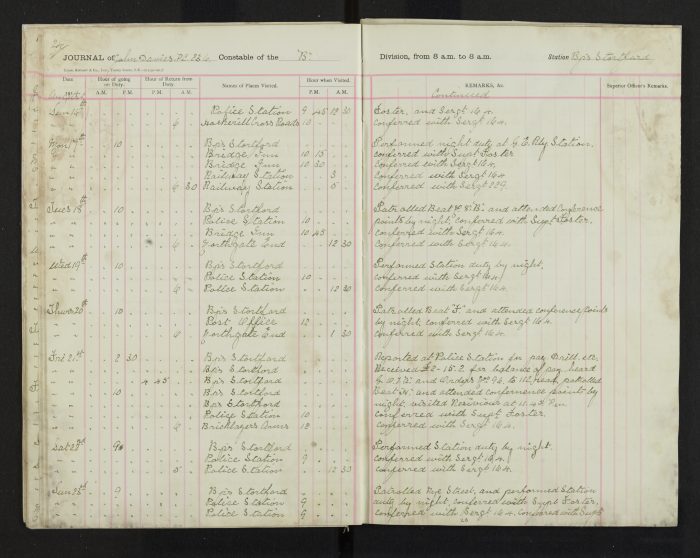 JOURNAL of John Davies, P.C. Constable of the "B" Division, from 8 a.m. to 8 a.m. Station Bp's Stortford
Date Hour of going on Duty. Hour of Return from Duty. Names of Places Visited. Hour when Visited. REMARKS, &c. Superior Officer's Remarks.
A.M. P.M. A.M. P.M. P.M. A.M. Continued
Sun 16th Police Station 9 45 12 30 Foster, and Sergt 164.
6 Hockerill Cross Roads 10 conferred with Sergt 164.
Mon 17th 10 Bp's Stortford Performed night duty at G. E. Rly Station,
Bridge Inn 10 15 conferred with Supt Foster
Bridge Inn 10 30 conferred with Sergt 164.
Railway Station 3 conferred with Sergt 164
6 30 Railway Station 5 conferred with Sergt 229.
Tues 18th 10 Bp's Stortford Patrolled Beat "B" and attended Conference
Police Station 10 points by night, conferred with Supt Foster.
Bridge Inn 10 45 conferred with Sergt 164.
6 Northgate End 12 30 conferred with Sergt 164.
Wed 19th 10 Bp's Stortford Performed Station duty by night,
Police Station 10 conferred with Sergt 164,
6 Police Station 12 30 conferred with Sergt 164.
Thurs 20th 10 Bp's Stortford Patrolled Beat "F", and attended conference points
Post Office 12 by night, conferred with Sergt 164.
6 Northgate End 1 30 conferred with Sergt 164.
Fri 21st 2 30 Bp's Stortford Reported at Police Station for pay Drill, etc.
Bp's Stortford Received £2-15-2 for balance of pay, heard
4 45 Bp's Stortford and Orders read, patrolled
10 Bp's Stortford Beat and attended conference points by
Bp's Stortford night, visited
Police Station 10 conferred with Supt Foster,
6 Bricklayers Arms 12 conferred with Sergt 164.
Sat 22nd 9 Bp's Stortford Performed Station duty by night,
Police Station 9 conferred with Sergt 164,
5 Police Station 12 30 conferred with Sergt 164.
Sun 23rd 9 Bp's Stortford Patrolled Rye Street, and performed Station
Police Station 9 duty by night, conferred with Supt Foster,
Police Station 9 conferred with Sergt 164. Conferred with Supt